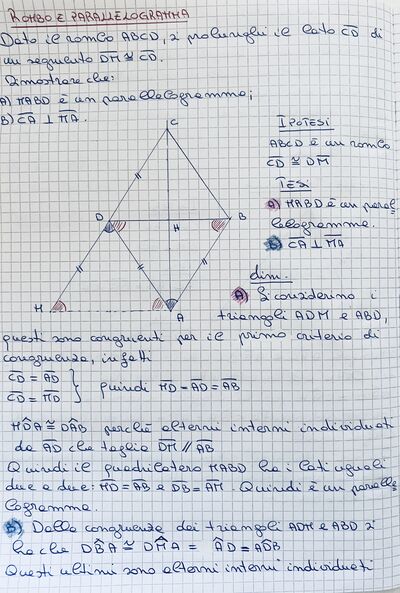 ROMBO E PARALLELOGRAMMA
Dato il rombo ABCD, si prolunghi il lato CD di
un segmento DM ≅ CD.
Dimostrare che:
A) MABD è un parallelogramma;
B) CA ⊥ MA.
C
IPOTESI
ABCD è un rombo
CD ≅ DM
TESI
D
H
B
a) MABD è un paral
lelogramma.
b) CA ⊥ MA
M
A
dim.
A) Si considerino i
triangoli ADM e ABD,
questi sono congruenti per il primo criterio di
congruenza, infatti
CD = AD
CD = MD
} quindi MD = AD = AB
MDA ≅ DAB perché alterni interni individuati
da AD che taglia DM // AB
Quindi il quadrilatero MABD ha i lati uguali
due a due: MD = AB e DB = AM. Quindi è un paralle
logramma.
B) Dalla congruenza dei triangoli ADM e ABD si
ha che DBA ≅ DMA = AD = ADB
Questi ultimi sono alterni interni individuati